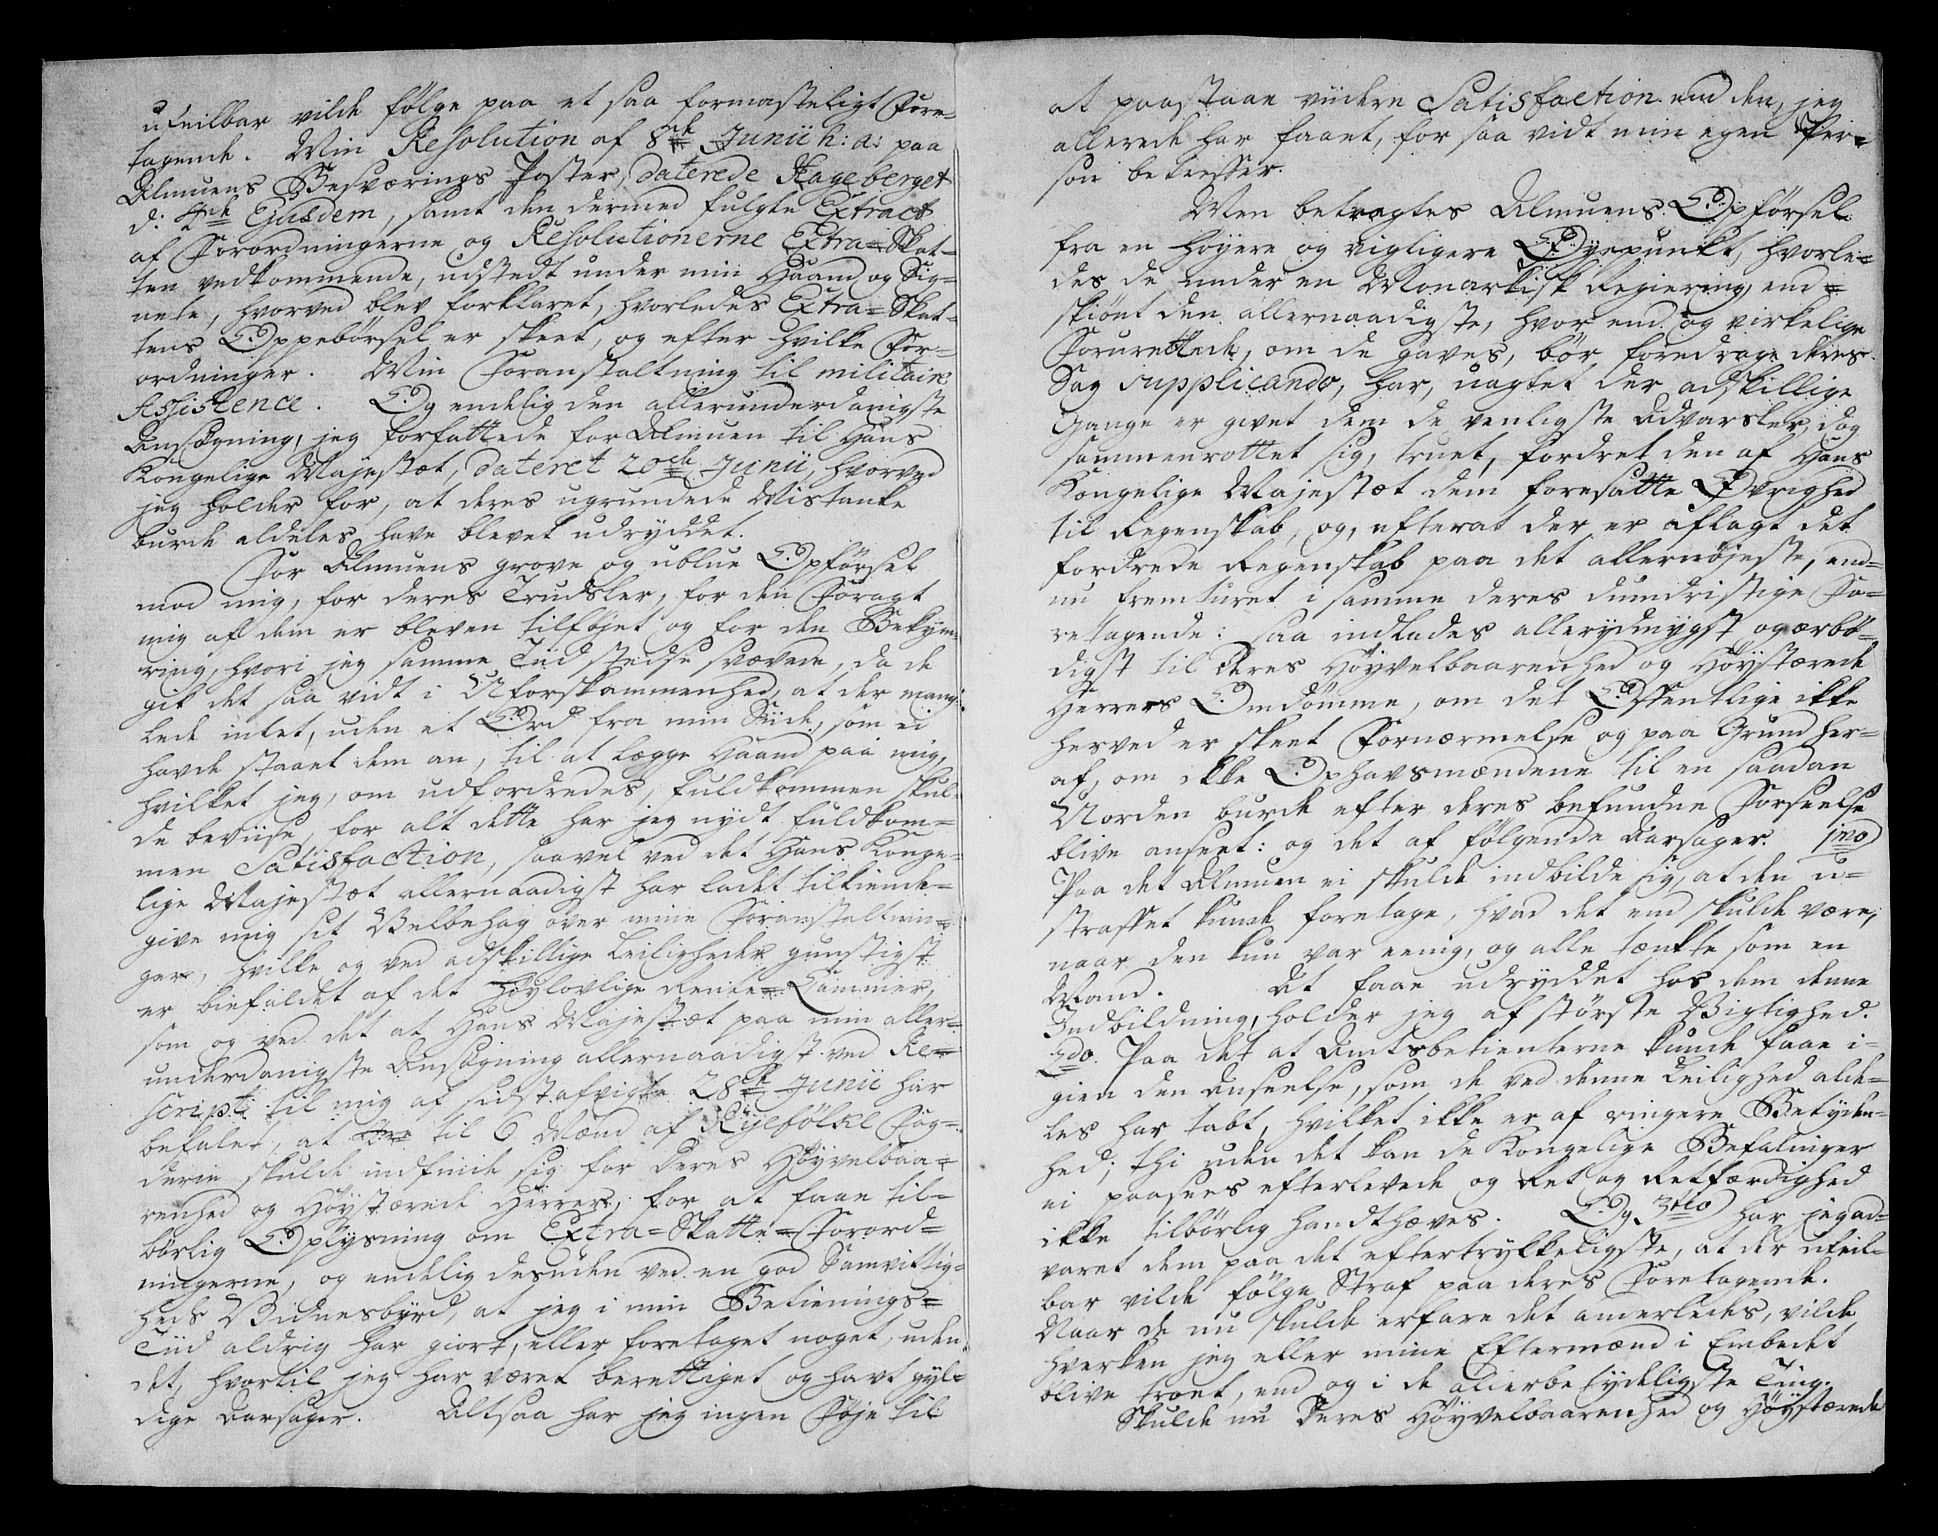 ufeilbar vilde følge paa et saa formasteligt Fore-
tagende. Min Resolution af 8de Junii h: a: paa
Almuens Besværings Poster, daterede Hageberget
d: 4de Ejusdem, samt den dermed fulgte Extract
af Forordningerne og Resolutionerne Extra-Skat-
ten vedkommende, udstedt under min Haand og Sig-
nete, hvorved blev forklaret, hvorledes Extra-Skat-
tens Oppebørsel er skeet, og efter hvilke For-
ordninger. Min Foranstaltning til militair
Assistence. Og endelig den allerunderdanigste
Ansøgning, jeg forfattede for Almuen til Hans
Kongelige Majestæt, dateret 20de Junii, hvorved
jeg holder for, at deres ugrundede Mistanke
burde aldeles have blevet udryddet.
For Almuens grove og ublue Opførsel
mod mig, for deres Trudsler, for den Foragt
mig af dem er bleven tilføjet og for den Bekym-
ring, hvori jeg samme Tiid stedse svævede, da de
gik det saa vidt i Uforskammenhed, at der mang-
lede intet, uden et Ord fra min Side, som ei
havde staaet dem an, til at lægge Haand paa mig,
hvilket jeg, om udfordredes, fuldkommen skul-
de beviise, for alt dette har jeg nydt fuldkom-
men Satisfaction, saavel ved det Hans Konge-
lige Majestæt allernaadigst har ladet tilkiende-
give mig sit Velbehag over mine Foranstaltnin-
ger, hvilke og ved adskillige Leiligheder gunstigst
er biefaldet af det Høylovlige Rente-Cammer,
som og ved det at Hans Majestæt paa min aller-
underdanigste Ansøgning allernaadigst ved Re-
script til mig af sidstafvigte 28de Junii har
befalet, at til 6 Mænd af Fog-
derie skulde indfinde sig for Deres Høyvelbaa-
renhed og Høystærede Herrer, for at faae til-
børlig Oplysning om Extra-Skatte-Forord-
ningerne, og endelig desuden ved en god Samvittig-
heds Vidnesbyrd, at jeg i min Betienings-
Tiid aldrig har giort, eller foretaget noget, uden
det, hvortil jeg har været berettiget og havt gyl-
dige Aarsager. Altsaa har jeg ingen Føje til
at paastaae viidere Satisfaction end den, jeg
allerede har faaet, for saa vidt min egen Per-
son betreffer.
Men betragtes Almuens Opførsel
fra en høyere og vigtigere Øyepunkt, hvorle-
des de under en Monarkisk Regiering, end-
skiønt den allernaadigste, hvor end og virkelige
Forurettede, om de gaves, bør foredrage deres
Sag supplicando, har, uagtet der adskillige
Gange er givet dem de venligste Advarsler, dog
sammenrottet sig, truet, fordret den af Hans
Kongelige Majestæt dem foresatte Øvrighed
til Regenskab, og, efterat der er aflagt det
fordrede Regenskab paa det allernøjeste, end-
nu fremturet i samme deres dumdristige Fo-
retagende: saa indlades allerydmygst og ærbø-
digst til Deres Høyvelbaarenhed og Høystærede
Herrers Omdømme, om det Offentlige ikke
herved er skeet Fornærmelse og paa Grund her-
af, om ikke Ophavsmændene til en saadan
Uorden burde efter deres befundne Forseelse
blive anseet: og det af følgende Aarsager. 1mo
Paa det Almuen ei skulde indbilde sig, at den u-
straffet kunde foretage, hvad det end skulde være,
naar den kun var eenig, og alle tænkte som en
Mand. At faae udryddet hos dem denne
Indbildning, holder jeg af største Vigtighed.
2do Paa det at Amtsbetienterne kunde faae i-
gien den Anseelse, som de ved denne Leilighed alde-
les har tabt, hvilket ikke er af ringere Betyden-
hed; thi uden det kan de Kongelige Befalinger
ei paasees efterlevede og Ret og Retfærdighed
ikke tilbørlig handthæves. Og 3tio har jeg ad-
varet dem paa det eftertrykkeligste, at der ufeil-
bar vilde følge Straf paa deres Foretagende.
Naar de nu skulde erfare det anderledes, vilde
hverken jeg eller mine Eftermænd i Embedet
blive troet, end og i de allerbetydeligste Ting.
Skulde nu Deres Høyvelbaarenhed og Høystærede